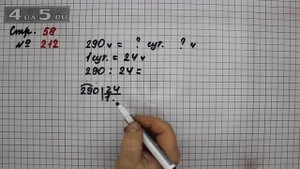 4 DA 5 RU
Стр. 58
№ 212
290 ч = ? сут. ? ч
1 сут. = 24 ч
290 : 24 =
290 24
1 .